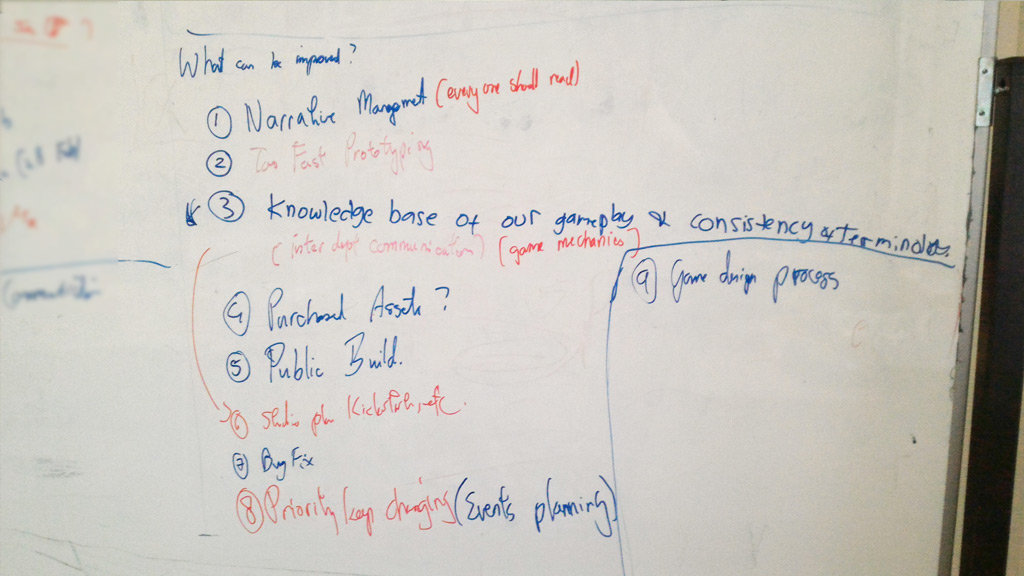 What can be improved?
① Narrative Management (everyone should read)
② Too Fast Prototyping
③ Knowledge base of our gameplay & consistency of
(inter dept communication) (game mechanics)
④ Purchased Assets?
⑤ Public Build.
⑥ Studio plan Kickstarter, etc.
⑦ Bug Fix
⑧ Priority keep changing (Events planning)
⑨ Game design process